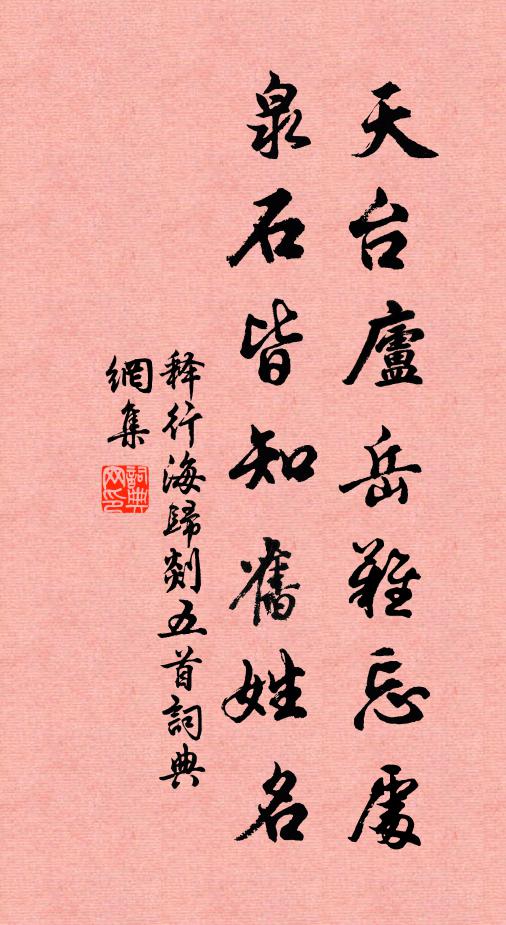 天台廬岳難忘處
泉石皆知舊姓名
释行海歸剡五首詞典
網集
詞典网印